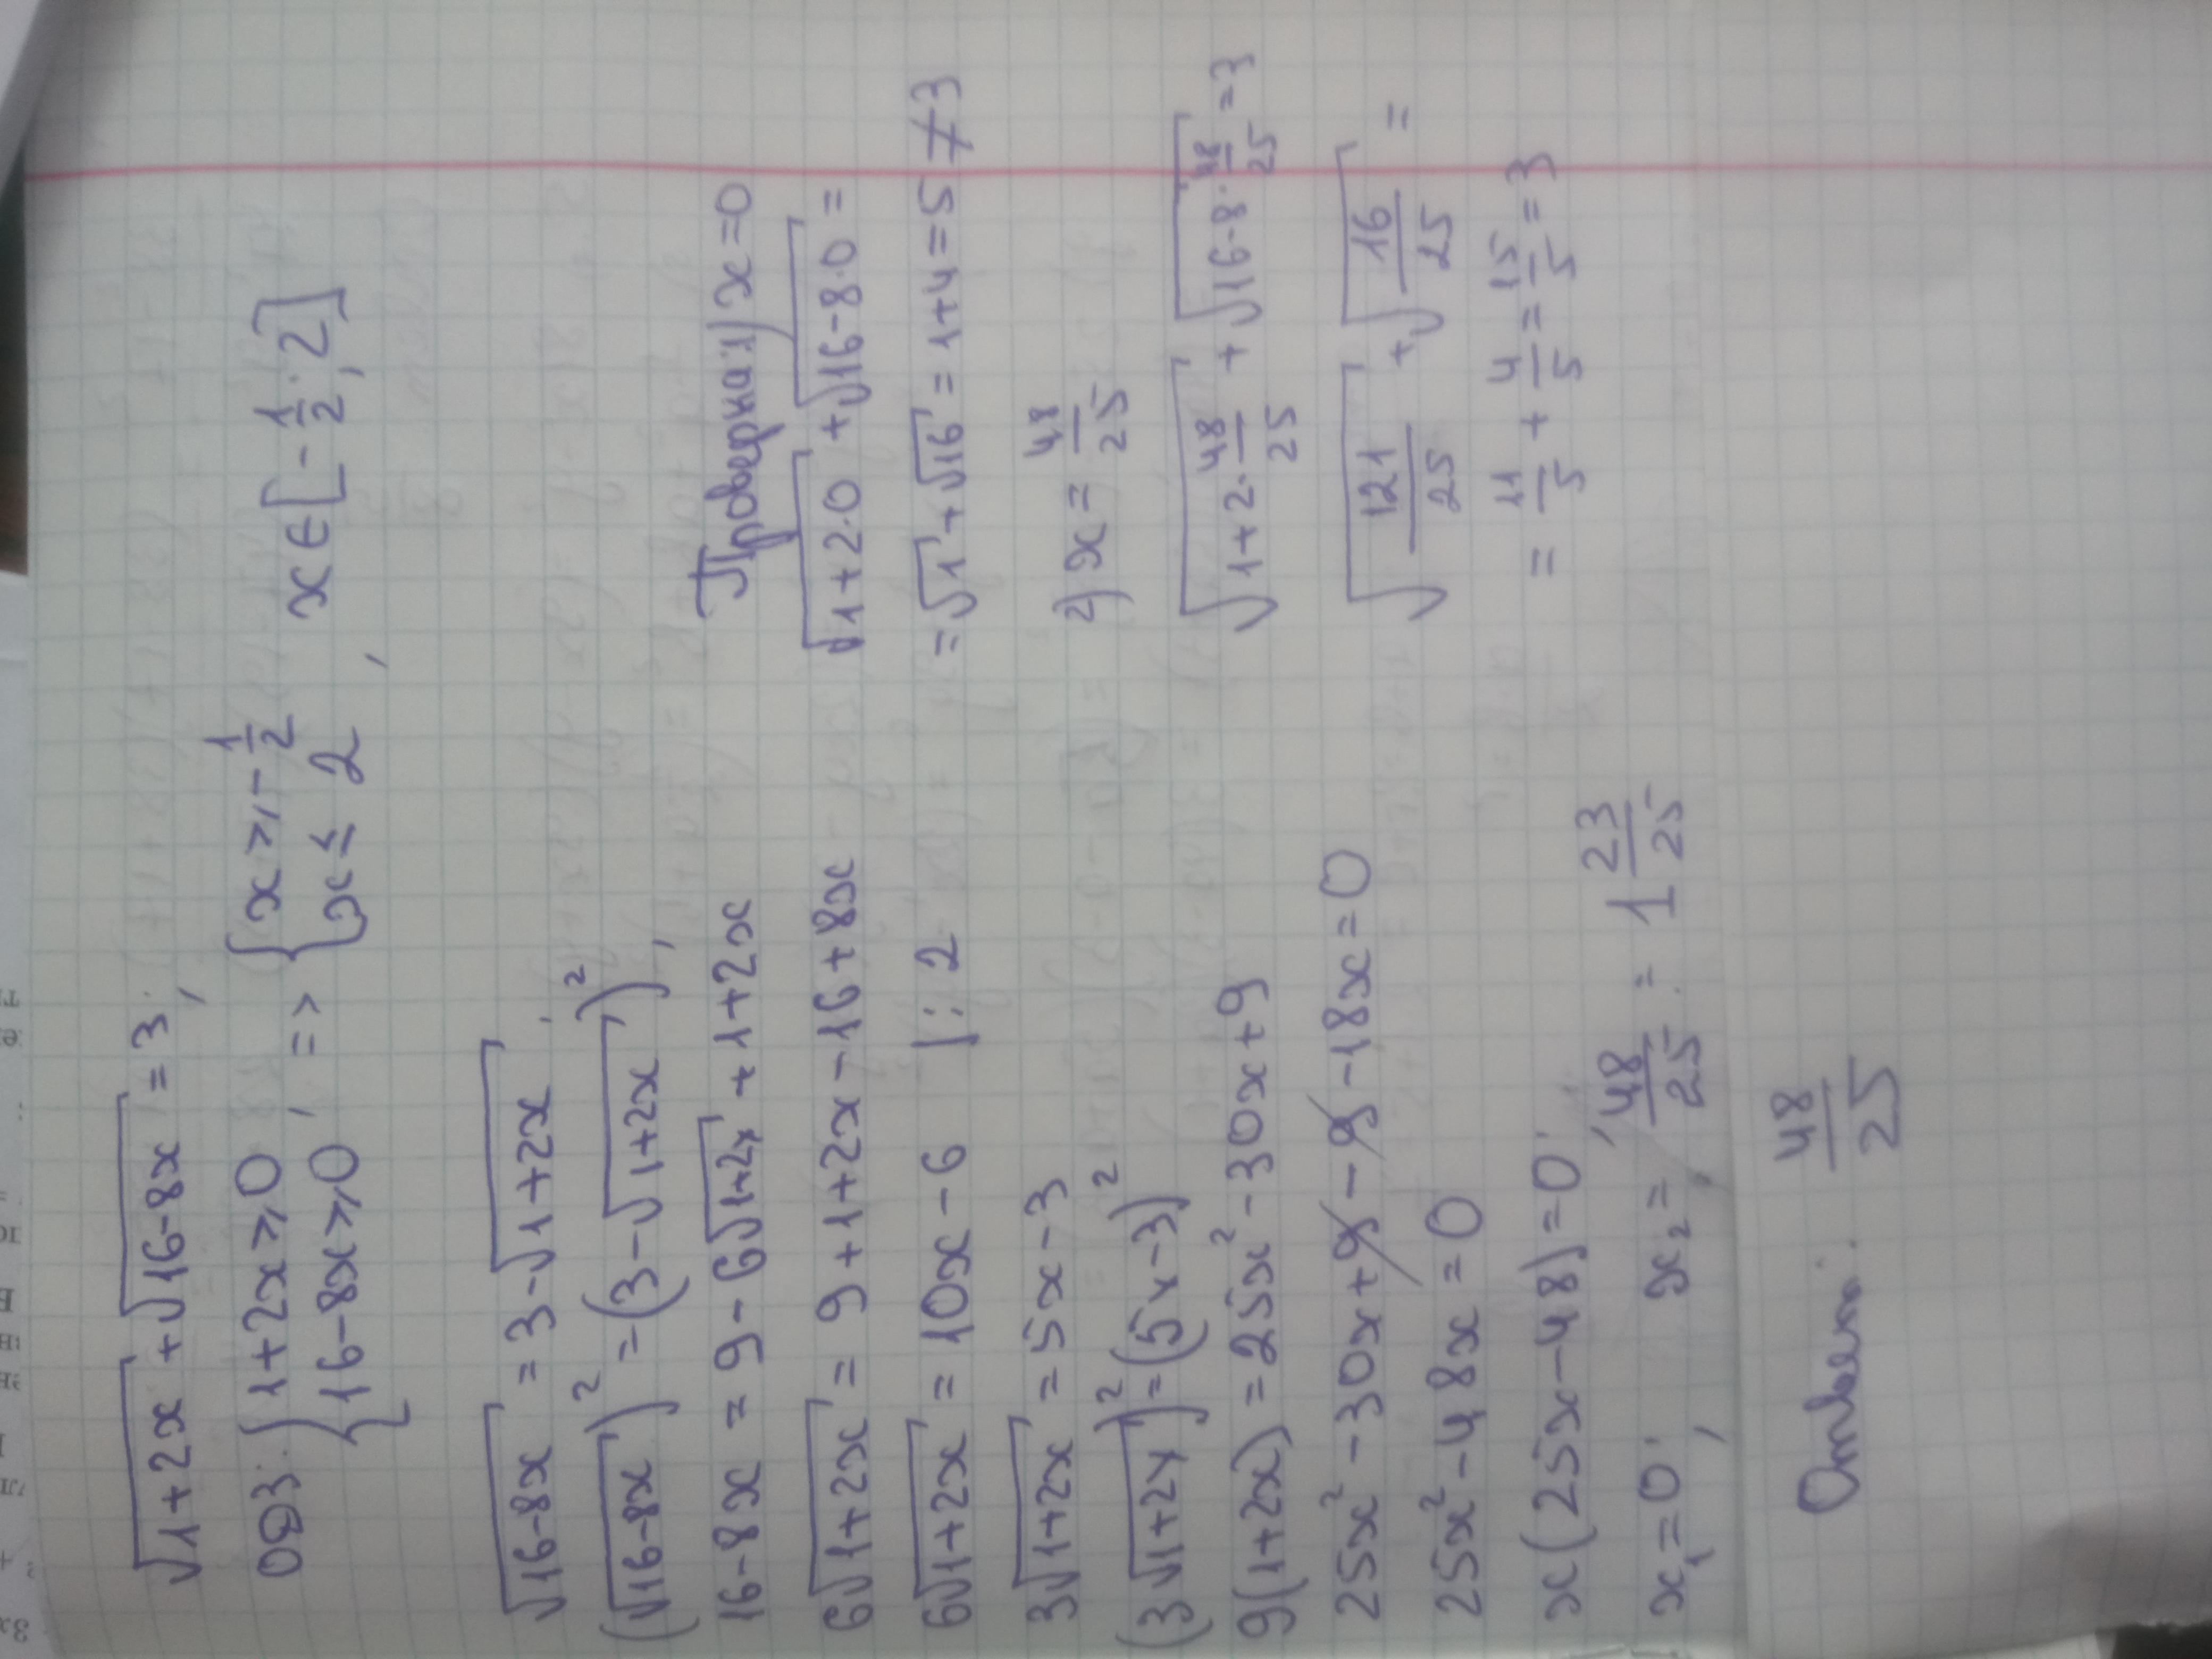 √(1+2x) + √(16-8x) = 3;
ОДЗ: { 1+2x ≥ 0, 16-8x ≥ 0 => { x ≥ -1/2, x ≤ 2 , x ∈ [-1/2; 2]
√(16-8x) = 3 - √(1+2x);
(√(16-8x))² = (3 - √(1+2x))²,
16-8x = 9 - 6√(1+2x) + 1+2x
6√(1+2x) = 9+1+2x-16+8x
6√(1+2x) = 10x-6 |:2
3√(1+2x) = 5x-3
(3√(1+2x))² = (5x-3)²
9(1+2x) = 25x²-30x+9
25x²-30x+9-9-18x=0
25x²-48x=0
x(25x-48)=0;
x₁=0; x₂= 48/25 = 1 23/25
Ответ: 48/25
Проверка: 1) x=0
√(1+2·0) + √(16-8·0) =
= √1 + √16 = 1+4=5 ≠ 3
2) x = 48/25
√(1+2·48/25) + √(16-8·48/25) = 3
√(121/25) + √(16/25) =
= 11/5 + 4/5 = 15/5 = 3